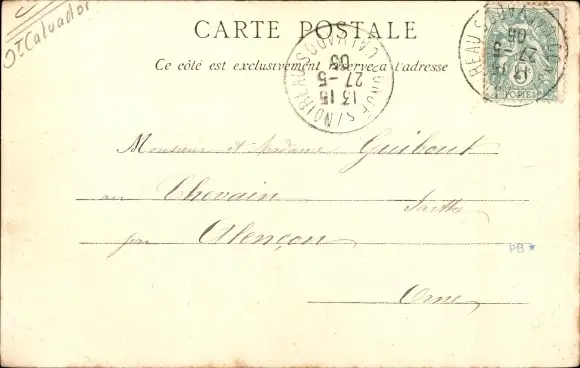 Ot Calvador
CARTE POSTALE
Ce côté est exclusivement réservé à l'adresse
CONDÉ S/NOIREAU CALVADOS
13 15
27 -5
03
5
POSTES
Monsieur et Madame Guibout
au Chevain Sarthe
par Alençon
Orne
PB *